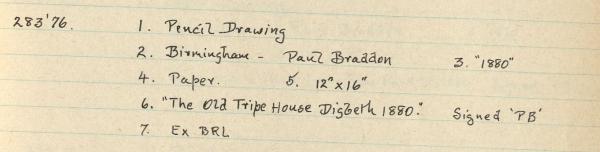 283'76. 1. Pencil Drawing
2. Birmingham - Paul Braddon 3. "1880"
4. Paper. 5. 12"x16"
6. "The Old Tripe House Digbeth 1880." Signed 'PB'
7. Ex BRL